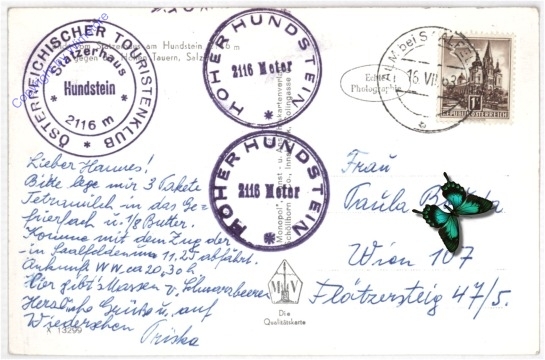 ÖSTERREICHISCHER TOURISTENKLUB
Statzerhaus
Hundstein
2116 m
HOHER HUNDSTEIN
2116 Meter
HOHER HUNDSTEIN
2116 Meter
am Hundstein
Tauern,
Echte
Photographie
16. VII. 63
1S
REPUBLIK ÖSTERREICH
Lieber Hannes!
Bitte lege mir 3 Pakete
Tetramilch in das Ge-
frierfach u. 1/8 Butter.
Komme mit dem Zug der
in Saalfelden um 11.25 abfährt.
Ankunft WW. ca 20,30 h
Hier gibts Massen v. Schwarzbeeren
Herzliche Grüsse u. auf
Wiedersehen Priska
X 13299
Frau
Paula
Wien 107
Flötzersteig 47/5.
Die
Qualitätskarte